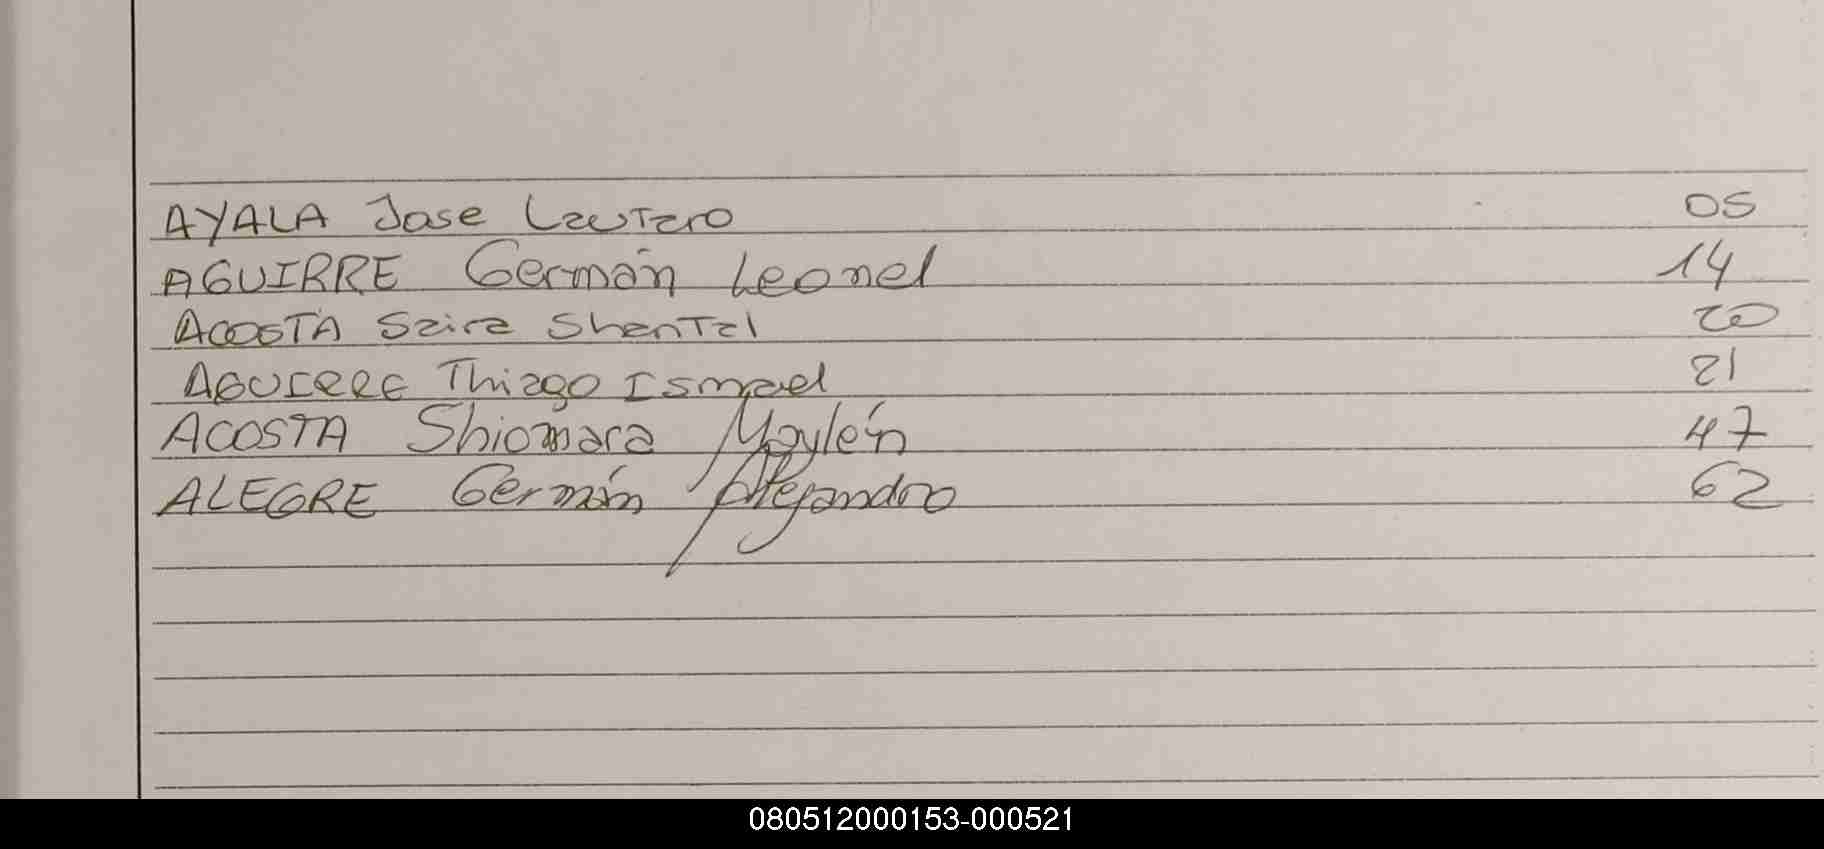 AYALA Jose Lautaro 05
AGUIRRE Germán Leonel 14
ACOSTA Saira Shantal 20
AGUIRRE Thiago Ismael 21
ACOSTA Shiomara Maylén 47
ALEGRE Germán Alejandro 62
080512000153-000521